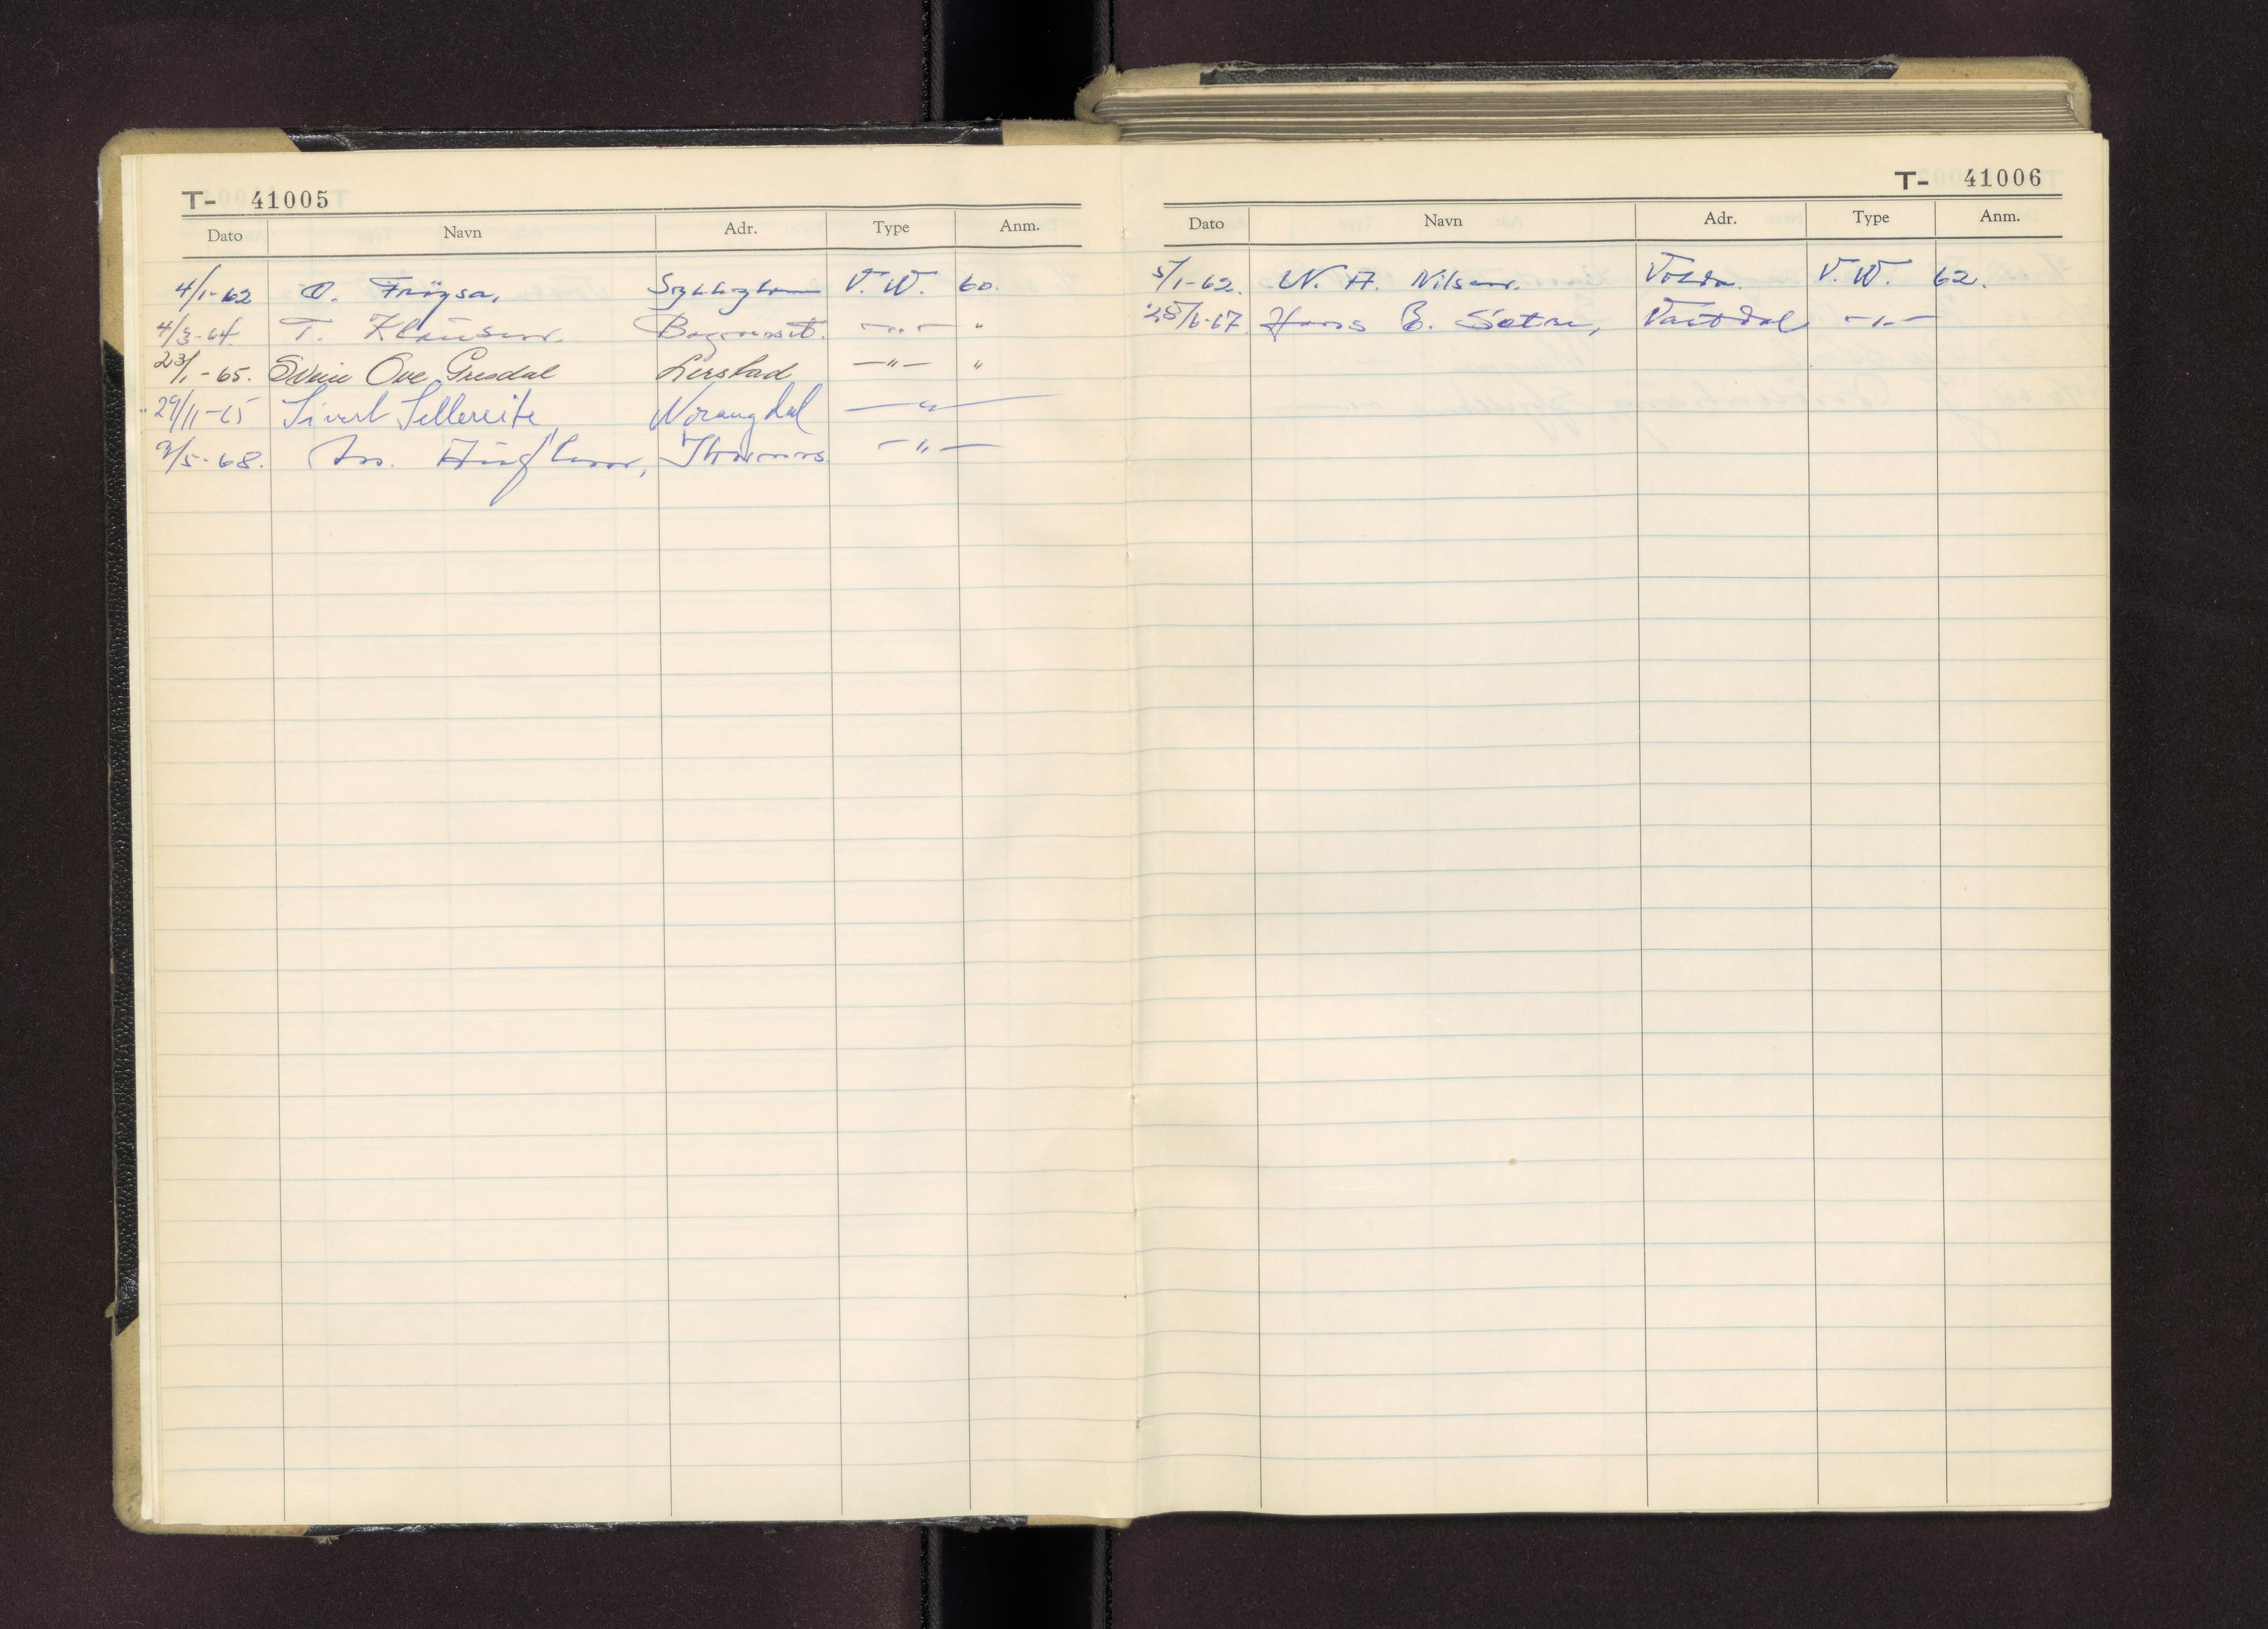 T- 41005
Dato Navn Adr. Type Anm.
4/1-62 O. Frøysa, V. W. 60.
4/3-64. T. Klausen. —"— "
23/1-65. Svein Ove Gresdal Lerstad —"— "
29/11-65 Sivert Sellereite, Norangdal —"—
2/5-68. —"—
T- 41006
Dato Navn Adr. Type Anm.
5/1-62. N. A. Nilsen. Volda. V. W. 62.
28/6-67. Hans B. Sætre, Vartdal —"—